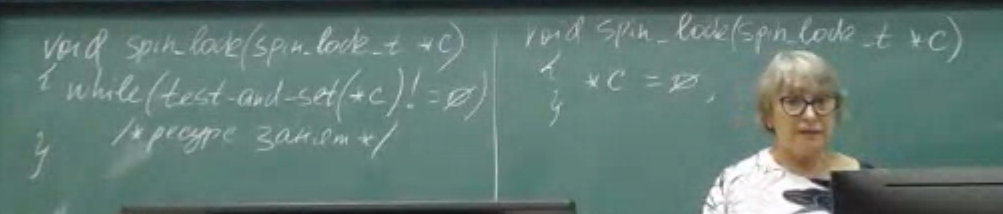 void spin_lock(spin_lock_t *c)
{ while(test-and-set(*c)!=ø)
/*ресурс занят*/
}
void spin_lock(spin_lock_t *c)
{
*c = ø;
}